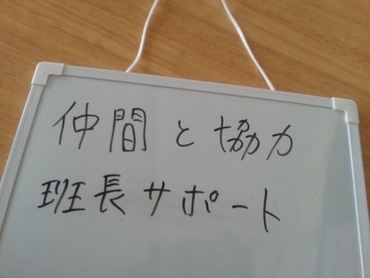 仲間と協力
班長サポート